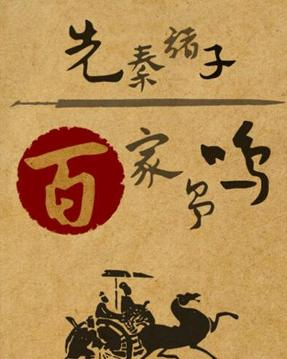 先秦诸子
百家争鸣